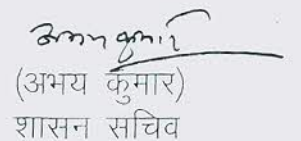 अभय कुमार
(अभय कुमार)
शासन सचिव